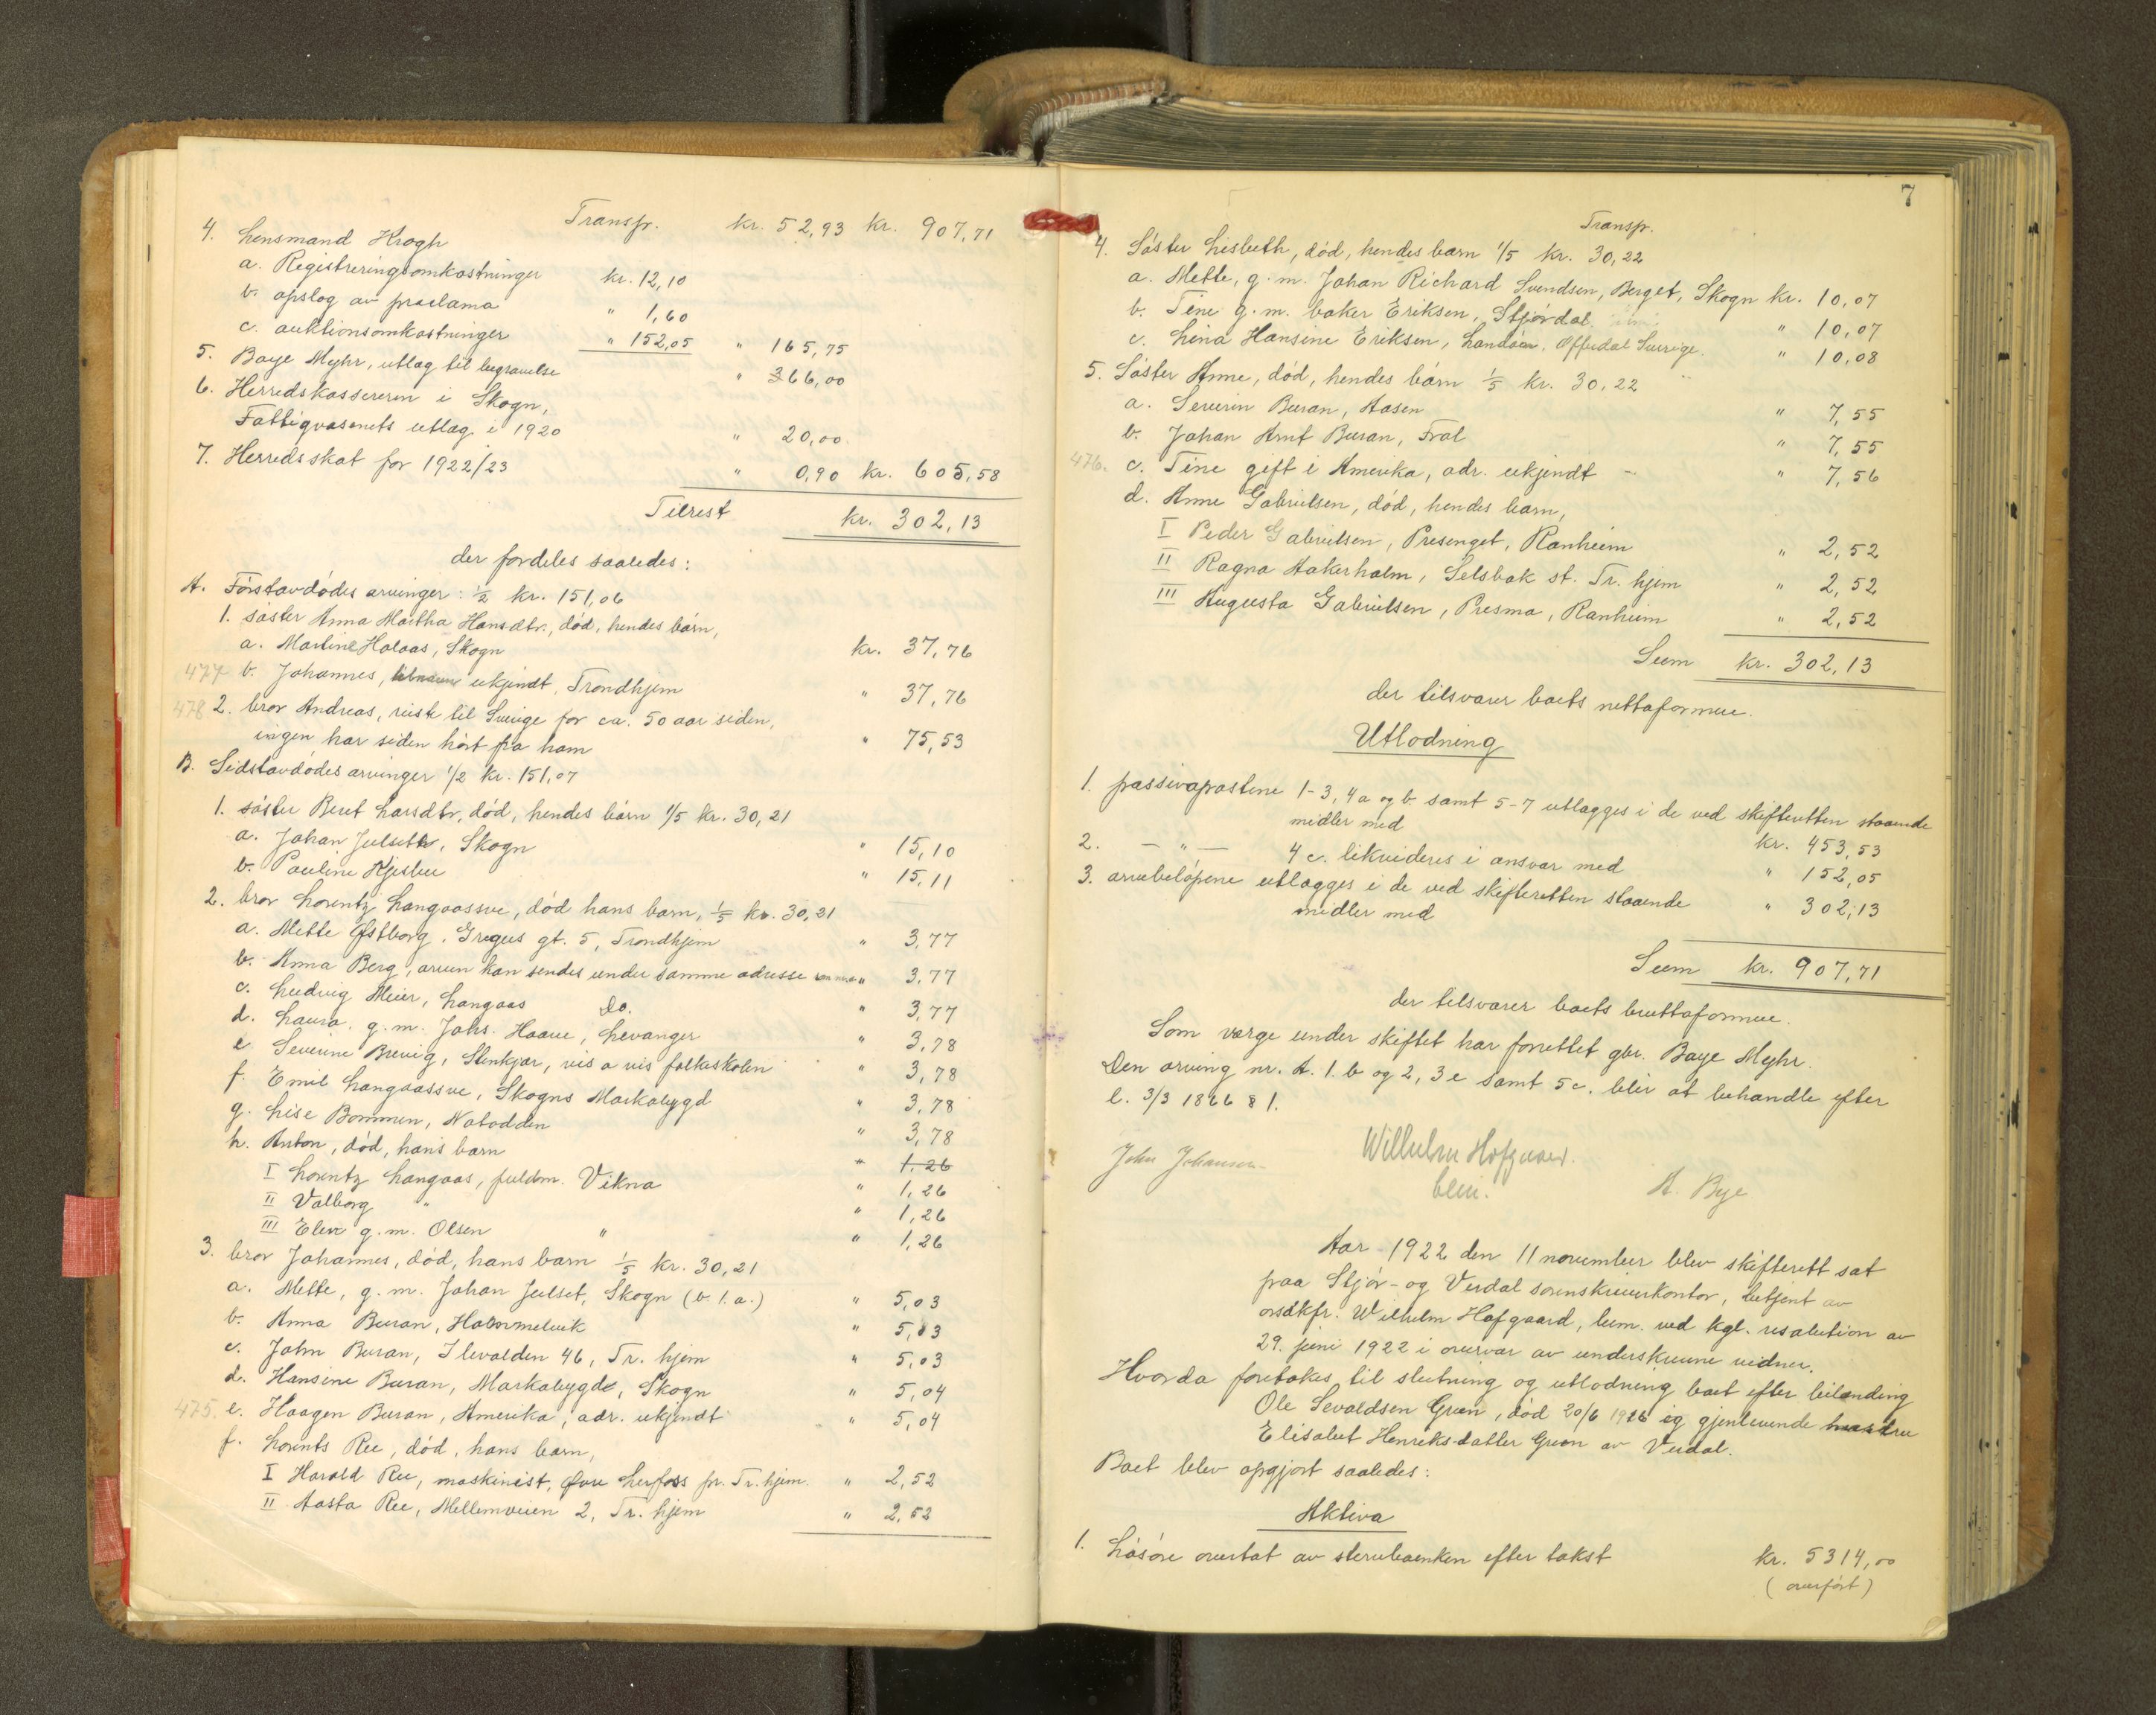 Transp. kr. 52,93 kr. 907,71
4. Lensmand Krogh
a. Registreringsomkostninger kr. 12,10
b. opslag av proclama " 1,60
c. auktionsomkostninger " 152,05 " 165,75
5. Baye Myhr, utlæg til begravelse " 366,00
6. Herredskassereren i Skogn,
Fattigvæsenets utlæg i 1920 " 20,00
7. Herredsskat for 1922/23 " 0,90 kr. 605,58
Tilrest kr. 302,13
der fordeles saaledes:
A. Førstavdødes arvinger: 1/2 kr. 151,06
1. søster Anna Martha Hansdtr., død, hendes børn,
a. Martine Halaas, Skogn kr. 37,76
477 b. Johannes, ukjendt, Trondhjem " 37,76
478 2. bror Andreas, reiste til Sverige for ca. 50 aar siden,
ingen har siden hørt fra ham " 75,53
B. Sidstavdødes arvinger 1/2 kr. 151,07
1. søster Beret Larsdtr, død, hendes børn 1/5 kr. 30,21
a. Johan Julseth, Skogn " 15,10
b. Pauline Kjesbu " 15,11
2. bror Lorentz Langaassve, død hans barn, 1/5 kr. 30,21
a. Mette Østborg, Gregus gt. 5, Trondhjem " 3,77
b. Anna Berg, arven kan sendes under samme adresse " 3,77
c. Ludvig Meier, Langaas Do. " 3,77
d. Laura g.m. Johs. Haave, Levanger " 3,78
e. Severine Brevig, Stenkjær, vis a vis folkeskolen " 3,78
f. Emil Langaassve, Skogns Markabygd " 3,78
g. Lise Bommen, Notodden " 3,78
h. Anton, død, hans barn " 1,26
I Lorentz Langaas, fuldm. Vikna " 1,26
II Valborg " " 1,26
III Elen g.m. Olsen " " 1,26
3. bror Johannes, død, hans barn 1/5 kr. 30,21
a. Mette, g.m. Johan Julset, Skogn (b.1.a.) " 5,03
b. Anna Buran, Hammelvik " 5,03
c. John Buran, Ilevolden 46, Tr.hjem " 5,03
d. Hansine Buran, Markabygd, Skogn " 5,04
475. e. Haagen Buran, Amerika, adr. ukjendt " 5,04
f. Lorents Ree, død, hans barn,
I Harald Ree, maskinist, Øvre Lerfoss pr. Tr.hjem. " 2,52
II Aasta Ree, Mellemveien 2, Tr.hjem " 2,52
7
Transp.
4. Søster Lisbeth, død, hendes barn 1/5 kr. 30,22
a. Mette, g.m. Johan Richard Svendsen, Berget, Skogn kr. 10,07
b. Tine g.m. baker Eriksen, Stjørdal " 10,07
c. Lina Hansine Eriksen, Landøen, Offerdal Sverige. " 10,08
5. Søster Anne, død, hendes børn 1/5 kr. 30,22
a. Severin Buran, Aasen " 7,55
b. Johan Arnt Buran, Frol " 7,55
476. c. Tine gift i Amerika, adr. ukjendt " 7,56
d. Anne Gabrielsen, død, hendes barn,
I Peder Gabrielsen, Presenget, Ranheim " 2,52
II Ragna Aakerholm, Selsbak st. Tr.hjem " 2,52
III Augusta Gabrielsen, Presmo, Ranheim " 2,52
Sum kr. 302,13
der tilsvarer boets nettoformue.
Utlodning
1. passivapostene 1-3, 4a og b samt 5-7 utlægges i de ved skifteretten staaende
midler med kr. 453,53
2. — " — 4c. likvideres i ansvar med " 152,05
3. arvebeløpene utlægges i de ved skifteretten staaende
midler med " 302,13
Sum kr. 907,71
der tilsvarer boets bruttoformue.
Som verge under skiftet har forrettet gbr. Baye Myhr.
Den arving nr. A. 1. b og 2, 3e samt 5c. blir at behandle efter
l. 3/3 1866 § 1.
Wilhelm Hofgaard.
bem.
John Johansen A. Bye
Aar 1922 den 11 november blev skifterett sat
paa Stjør- og Verdal sorenskriverkontor, betjent av
orsakfr. Wilhelm Hofgaard, bem. ved kgl. resolution av
29. juni 1922 i overvær av underskrevne vidner.
Hvorda foretokes til slutning og utlodning boet efter leilending
Ole Sevaldsen Green, død 20/6 1916 og gjenlevende hustru
Elisabet Henriksdatter Green av Verdal.
Boet blev opgjort saaledes:
Aktiva
1. Løsøre overtat av stervboenken efter takst kr. 5314,00
(overført)